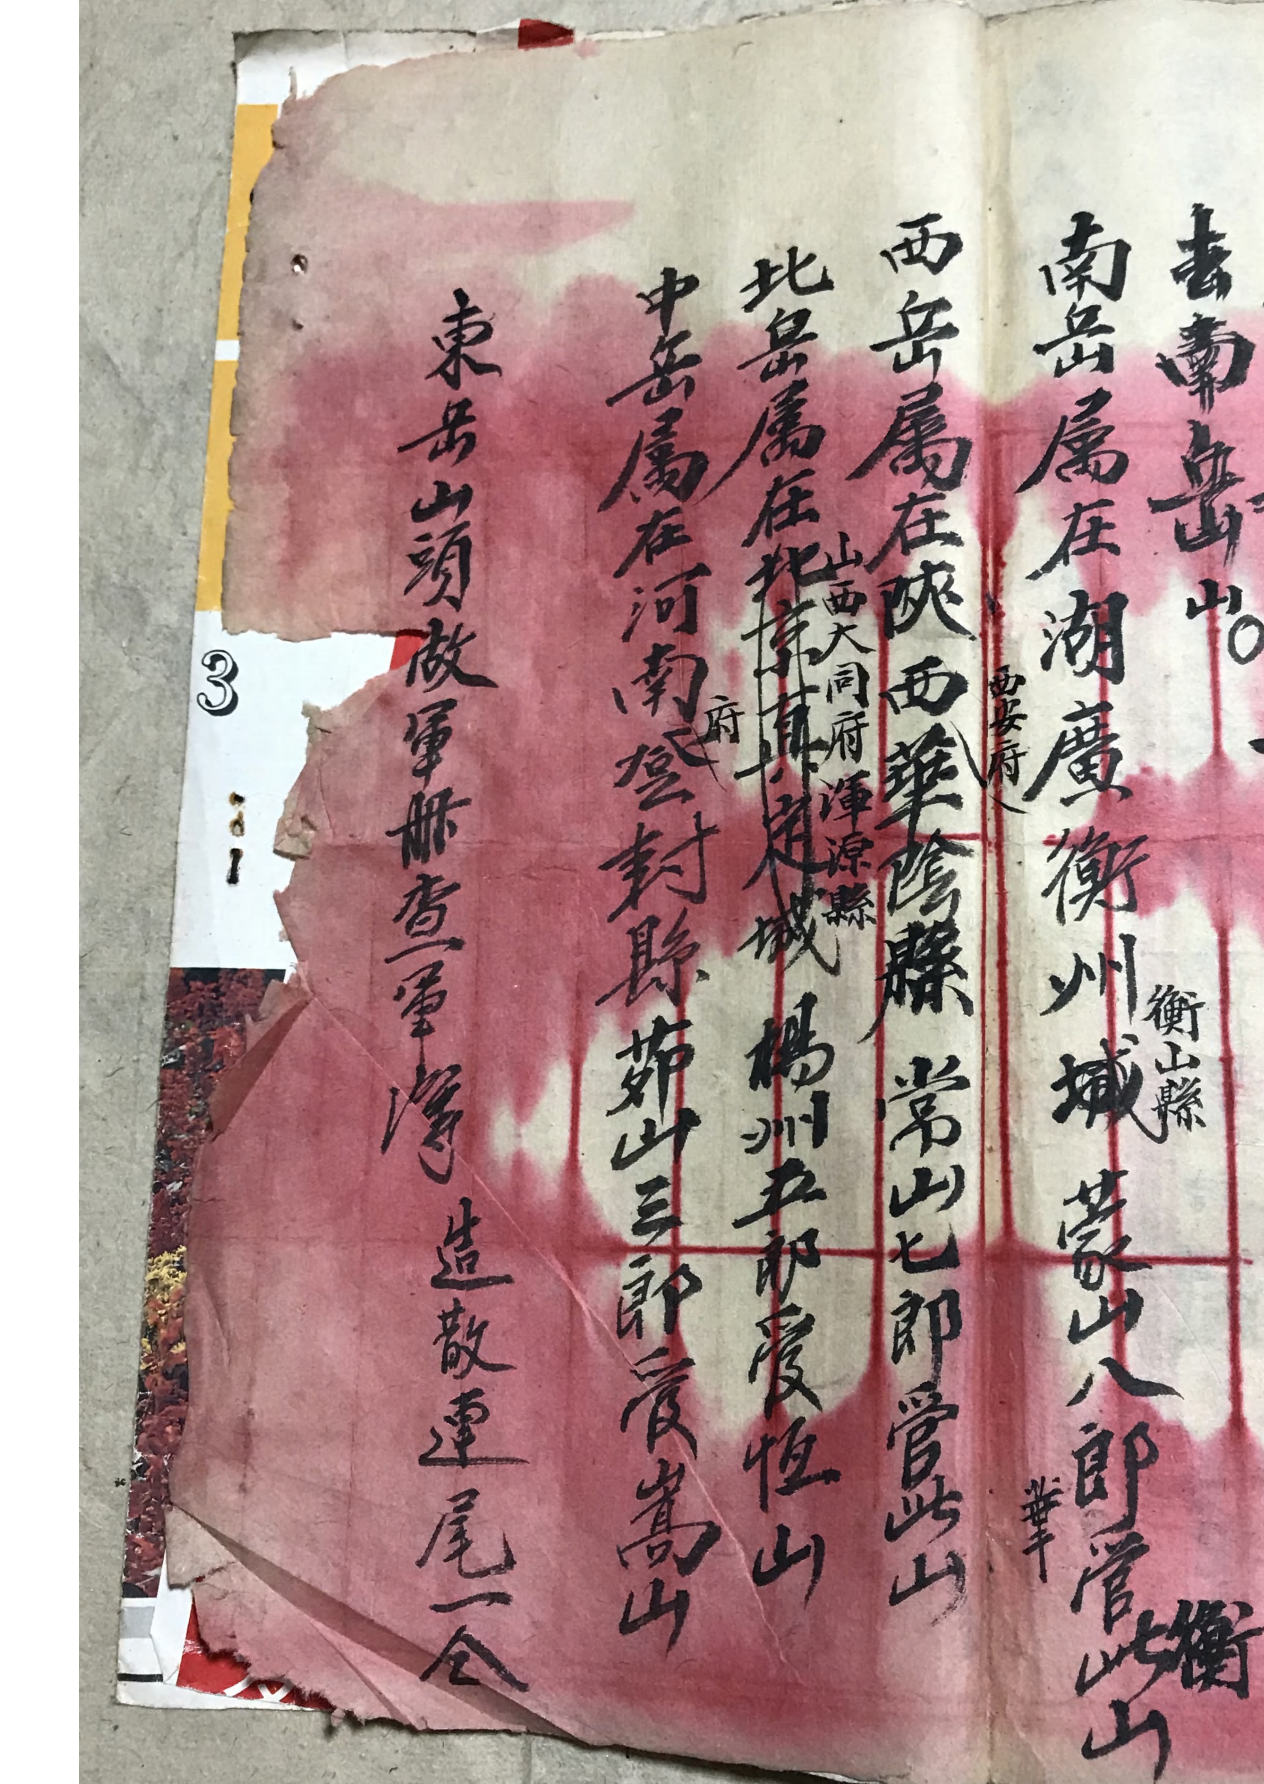 南岳山
南岳属在湖廣衡州城蒙山八郎管此山
衡山縣
衡
西岳属在陜西華陰縣常山七郎管此山
西安府
華
北岳属在北京真定城楊州五郎受恆山
山西大同府渾源縣
中岳属在河南登封縣茆山三郎受嵩山
府
東岳山頭做軍册查軍 造散連尾一仝
3
1